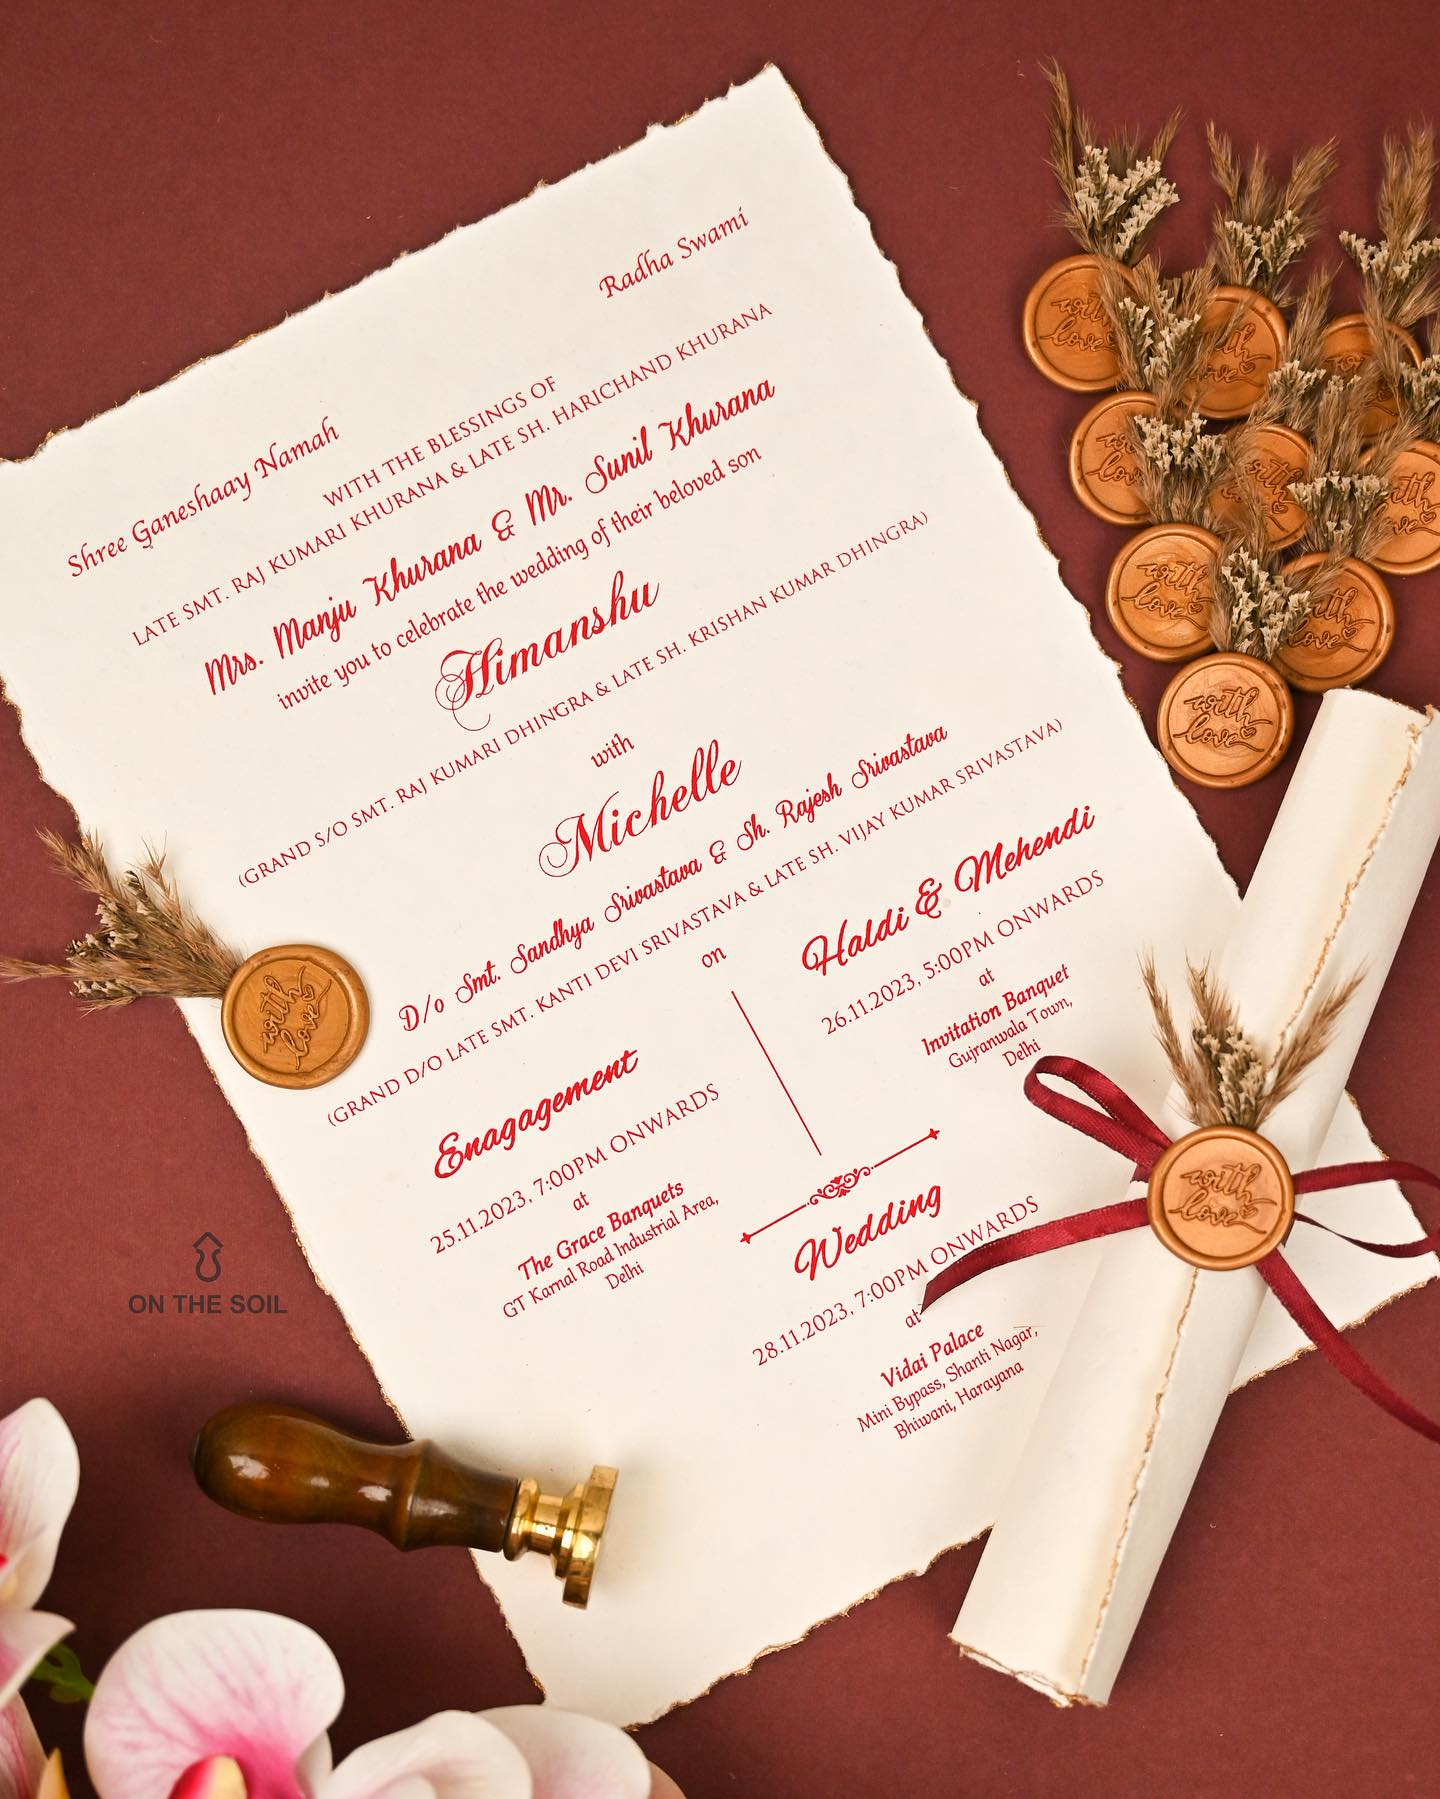 Shree Ganeshaay Namah
Radha Swami
WITH THE BLESSINGS OF
LATE SMT. RAJ KUMARI KHURANA & LATE SH. HARICHAND KHURANA
Mrs. Manju Khurana & Mr. Sunil Khurana
invite you to celebrate the wedding of their beloved son
Himanshu
(GRAND S/O SMT. RAJ KUMARI DHINGRA & LATE SH. KRISHAN KUMAR DHINGRA)
with
Michelle
D/o Smt. Sandhya Srivastava & Sh. Rajesh Srivastava
(GRAND D/O LATE SMT. KANTI DEVI SRIVASTAVA & LATE SH. VIJAY KUMAR SRIVASTAVA)
on
Enagagement
25.11.2023, 7:00PM ONWARDS
at
The Grace Banquets
GT Karnal Road Industrial Area,
Delhi
Haldi & Mehendi
26.11.2023, 5:00PM ONWARDS
at
Invitation Banquet
Gujranwala Town,
Delhi
Wedding
28.11.2023, 7:00PM ONWARDS
at
Vidai Palace
Mini Bypass, Shanti Nagar,
Bhiwani, Harayana
with
love
with
love
with
love
with
love
with
love
with
love
with
love
with
love
with
love
with
love
with
love
ON THE SOIL